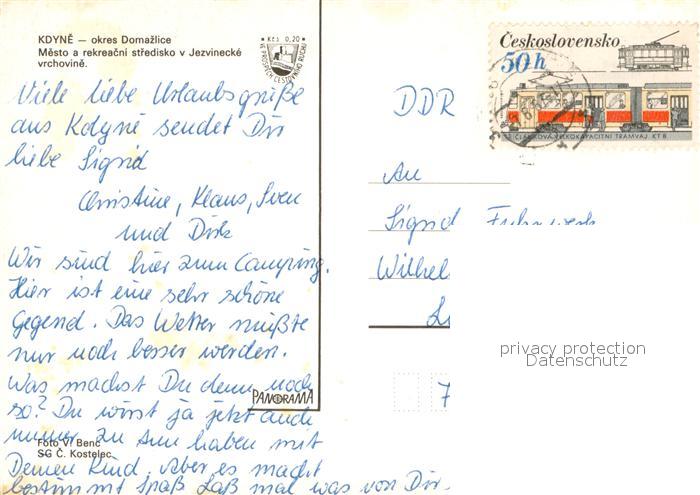 KDYNĚ — okres Domažlice
Město a rekreační středisko v Jezvinecké
vrchovině.
Kčs 0,20
VE PROSPĚCH CESTOVNÍHO RUCHU
Československo
50h
ČLÁNKOVÁ VELKOKAPACITNÍ TRAMVAJ KT 8
Viele liebe Urlaubsgrüße
aus Kdyně sendet Dir
liebe Sigrid
Christine, Klaus, Sven
und Dirk
Wir sind hier zum Camping.
Hier ist eine sehr schöne
Gegend. Das Wetter müßte
nur noch besser werden.
Was machst Du denn noch
so? Du wirst ja jetzt auch
immer zu tun haben mit
Deinem Kind. Aber es macht
bestimmt Spaß. Laß mal was von Dir
PANORAMA
Foto V. Benč
SG Č. Kostelec
DDR
An
Sigrid
Wilhel
7
privacy protection
Datenschutz